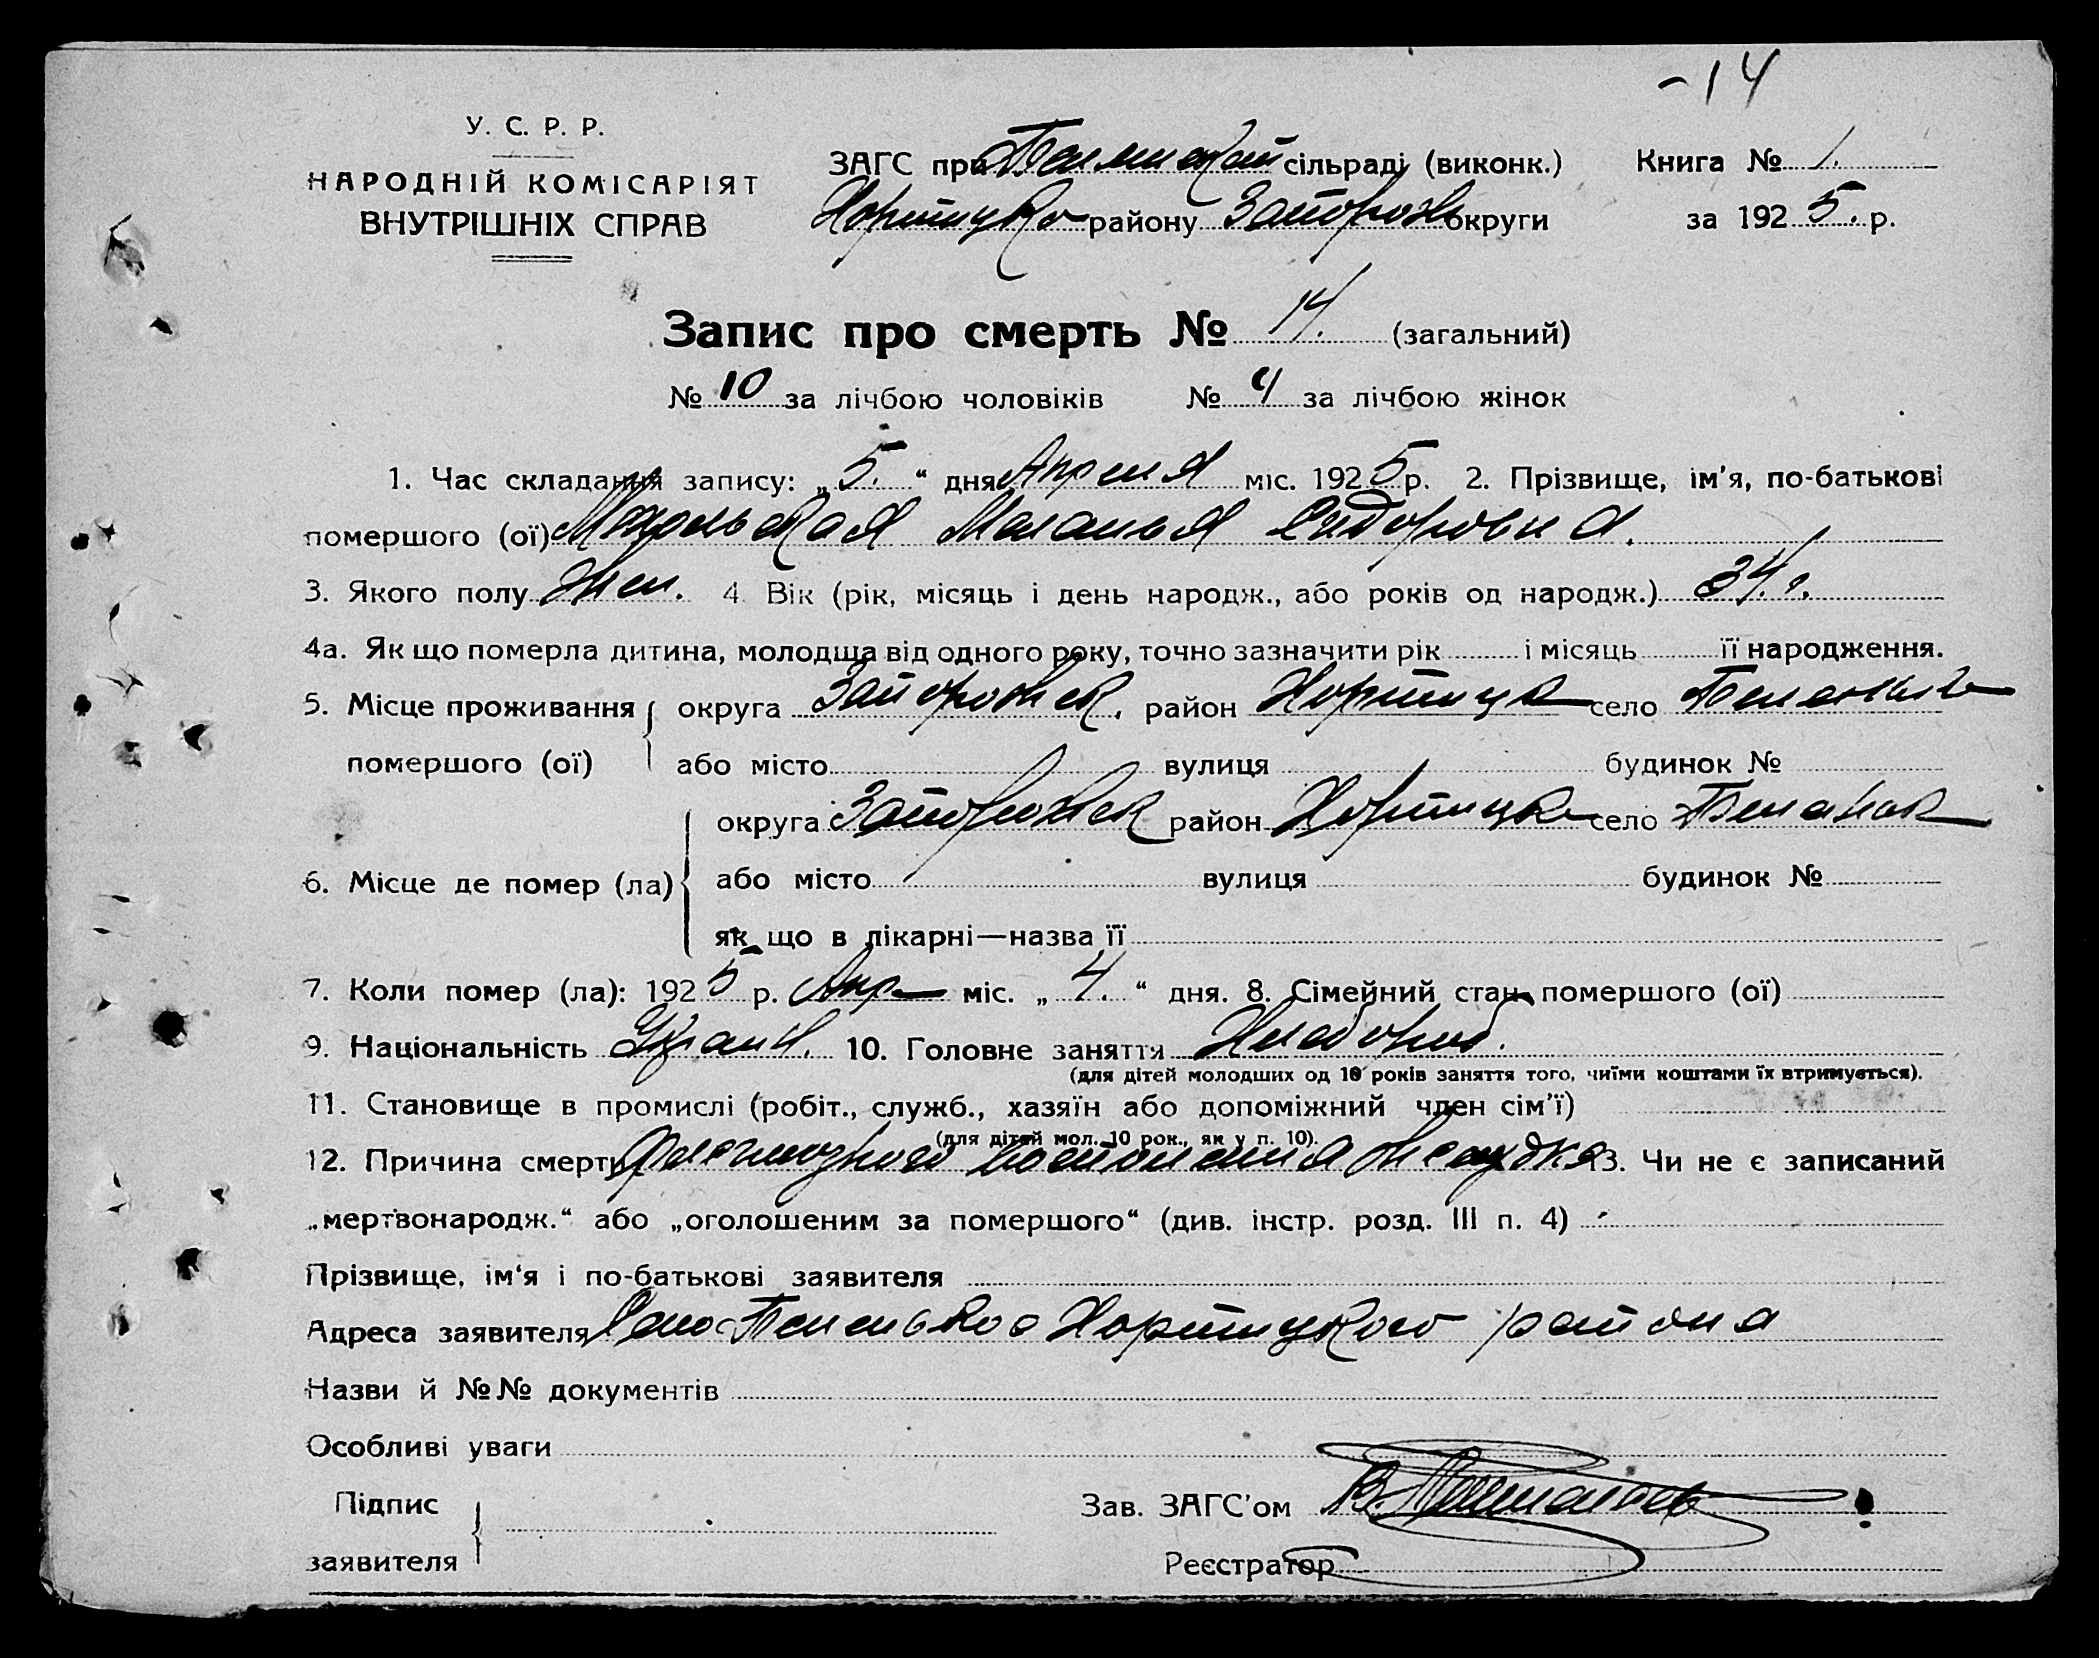 -14
У. С. Р. Р.
НАРОДНІЙ КОМІСАРІЯТ
ВНУТРІШНІХ СПРАВ
ЗАГС при сільраді (виконк.) Книга № 1.
Хортицко району Запорож округи за 1925. р.
Запис про смерть № 14. (загальний)
№ 10 за лічбою чоловіків № 4 за лічбою жінок
1. Час складання запису: „5.“ дня Апреля міс. 1925 р. 2. Прізвище, ім'я, по-батькові
помершого (ої) Маланья Сидоровна.
3. Якого полу Жен. 4. Вік (рік, місяць і день народж., або років од народж.) 34. г.
4а. Як що померла дитина, молодща від одного року, точно зазначити рік і місяць її народження.
5. Місце проживання округа Запорожск. район Хортицк село
помершого (ої) або місто вулиця будинок №
округа Запорожск район Хортицк село
6. Місце де помер (ла) або місто вулиця будинок №
як що в лікарні—назва її
7. Коли помер (ла): 1925 р. Апр міс. „4.“ дня. 8. Сімейний стан помершого (ої)
9. Національність Украин. 10. Головне заняття Хлебороб.
(для дітей молодших од 10 років заняття того, чиїми коштами їх втримується).
11. Становище в промислі (робіт., служб., хазяїн або допоміжний член сім'ї)
(для дітей мол. 10 рок., як у п. 10).
12. Причина смерти желудка 13. Чи не є записаний
„мертвонародж.“ або „оголошеним за помершого“ (див. інстр. розд. III п. 4)
Прізвище, ім'я і по-батькові заявителя
Адреса заявителя Хортицкого района
Назви й №№ документів
Особливі уваги
Підпис Зав. ЗАГС'ом
заявителя Реєстратор